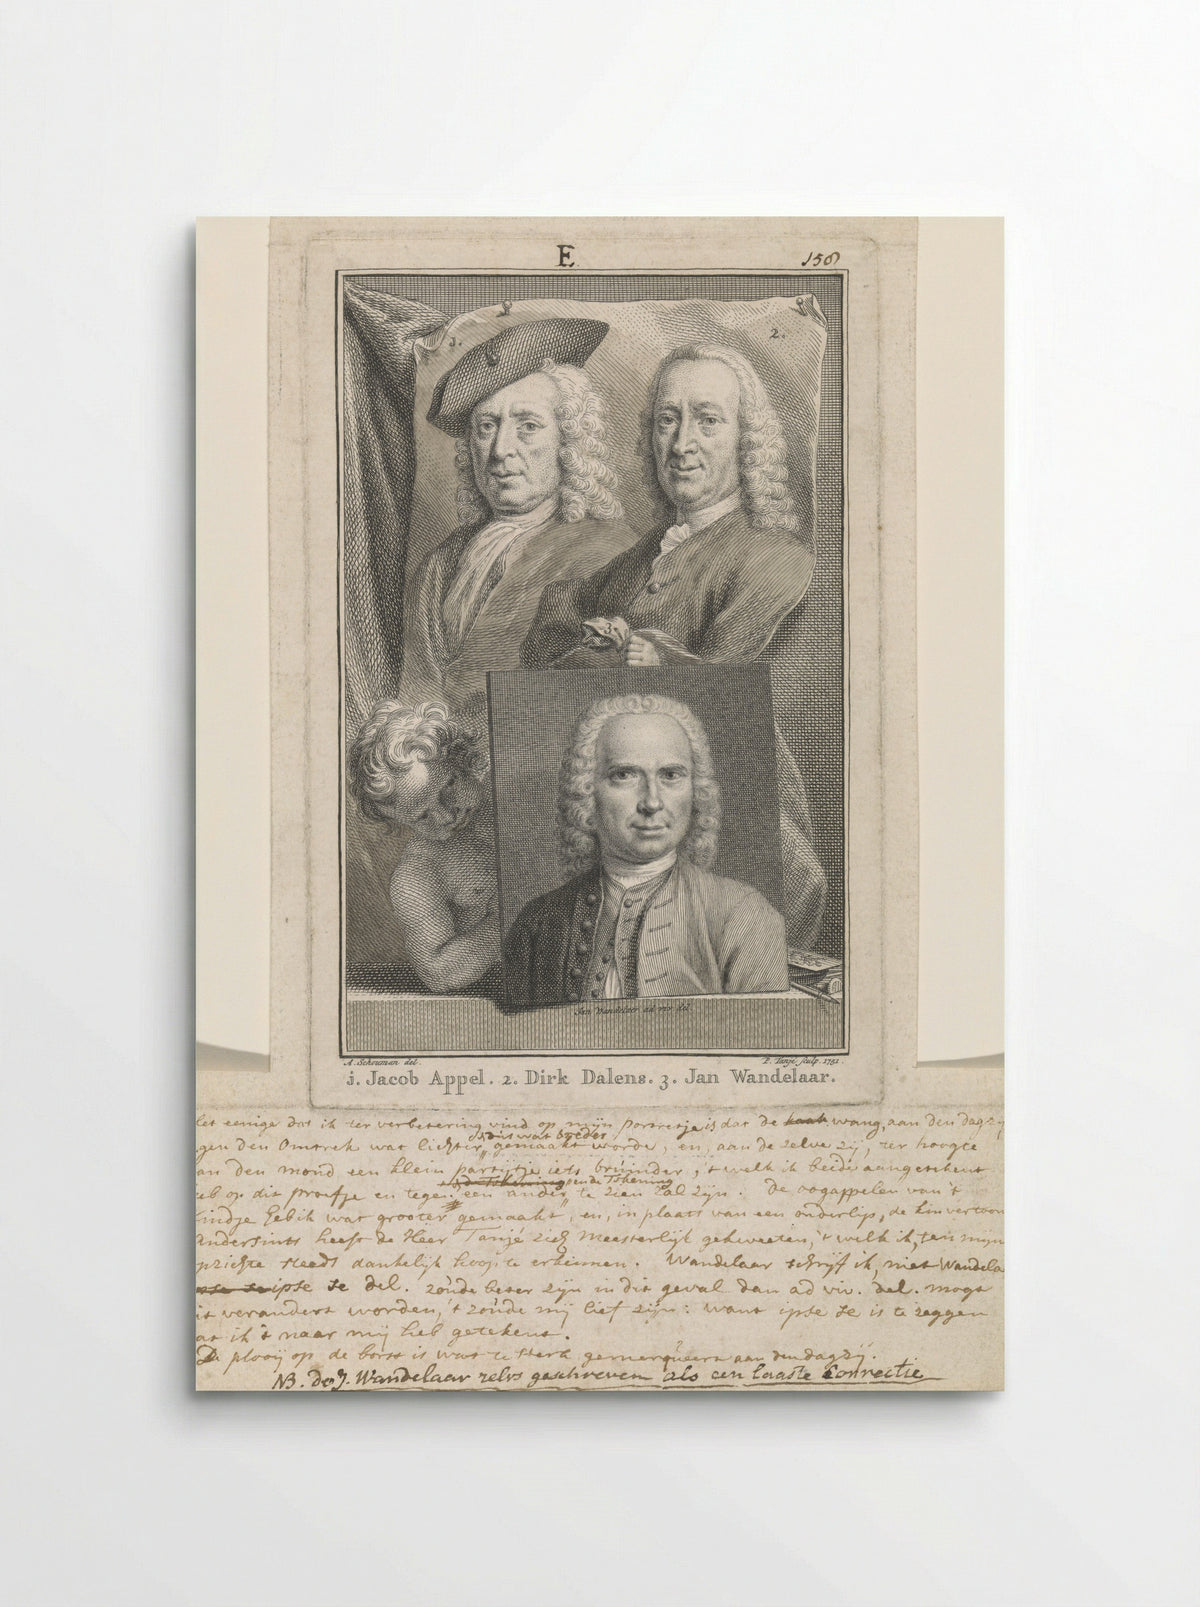 E.
156
1.
2.
3.
Jan Wandelaar ad viv. del.
A. Schouman del.
P. Tanjé sculp. 1751.
1. Jacob Appel. 2. Dirk Dalens. 3. Jan Wandelaar.
eenige dat ik ter verbetering vind op mijn portretje is dat de kaak wang, aan den dag zy
dus wat breder
gen den Omtrek wat lichter, gemaakt worde, en, aan de zelve zij, ter hoogte
an den mond een klein partijtje iets bruinder, 't welk ik beide aangetekent
sende Tekening
eb op dit proefje en tegen een ander te zien zal zijn. De oogappelen van 't
indje heb ik wat grooter gemaakt, en, in plaats van een onderlip, de kin vertoon
andersints heeft de Heer Tanjé zich meesterlijk gekweeten, 't welk ik, ten mijn
steeds dankelijk hoop te erkennen. Wandelaar schrijf ik, niet Wandela
ipse se del. zoude beter zijn in dit geval dan ad viv. del. mogt
it verandert worden, 't zoude mij lief zijn: want ipse se is te zeggen
at ik 't naar mij heb getekent.
De plooij op de borst is wat te sterk gemerqueert aan den dag zij.
NB. Do J. Wandelaar zelvs geschreven als een laaste Correctie